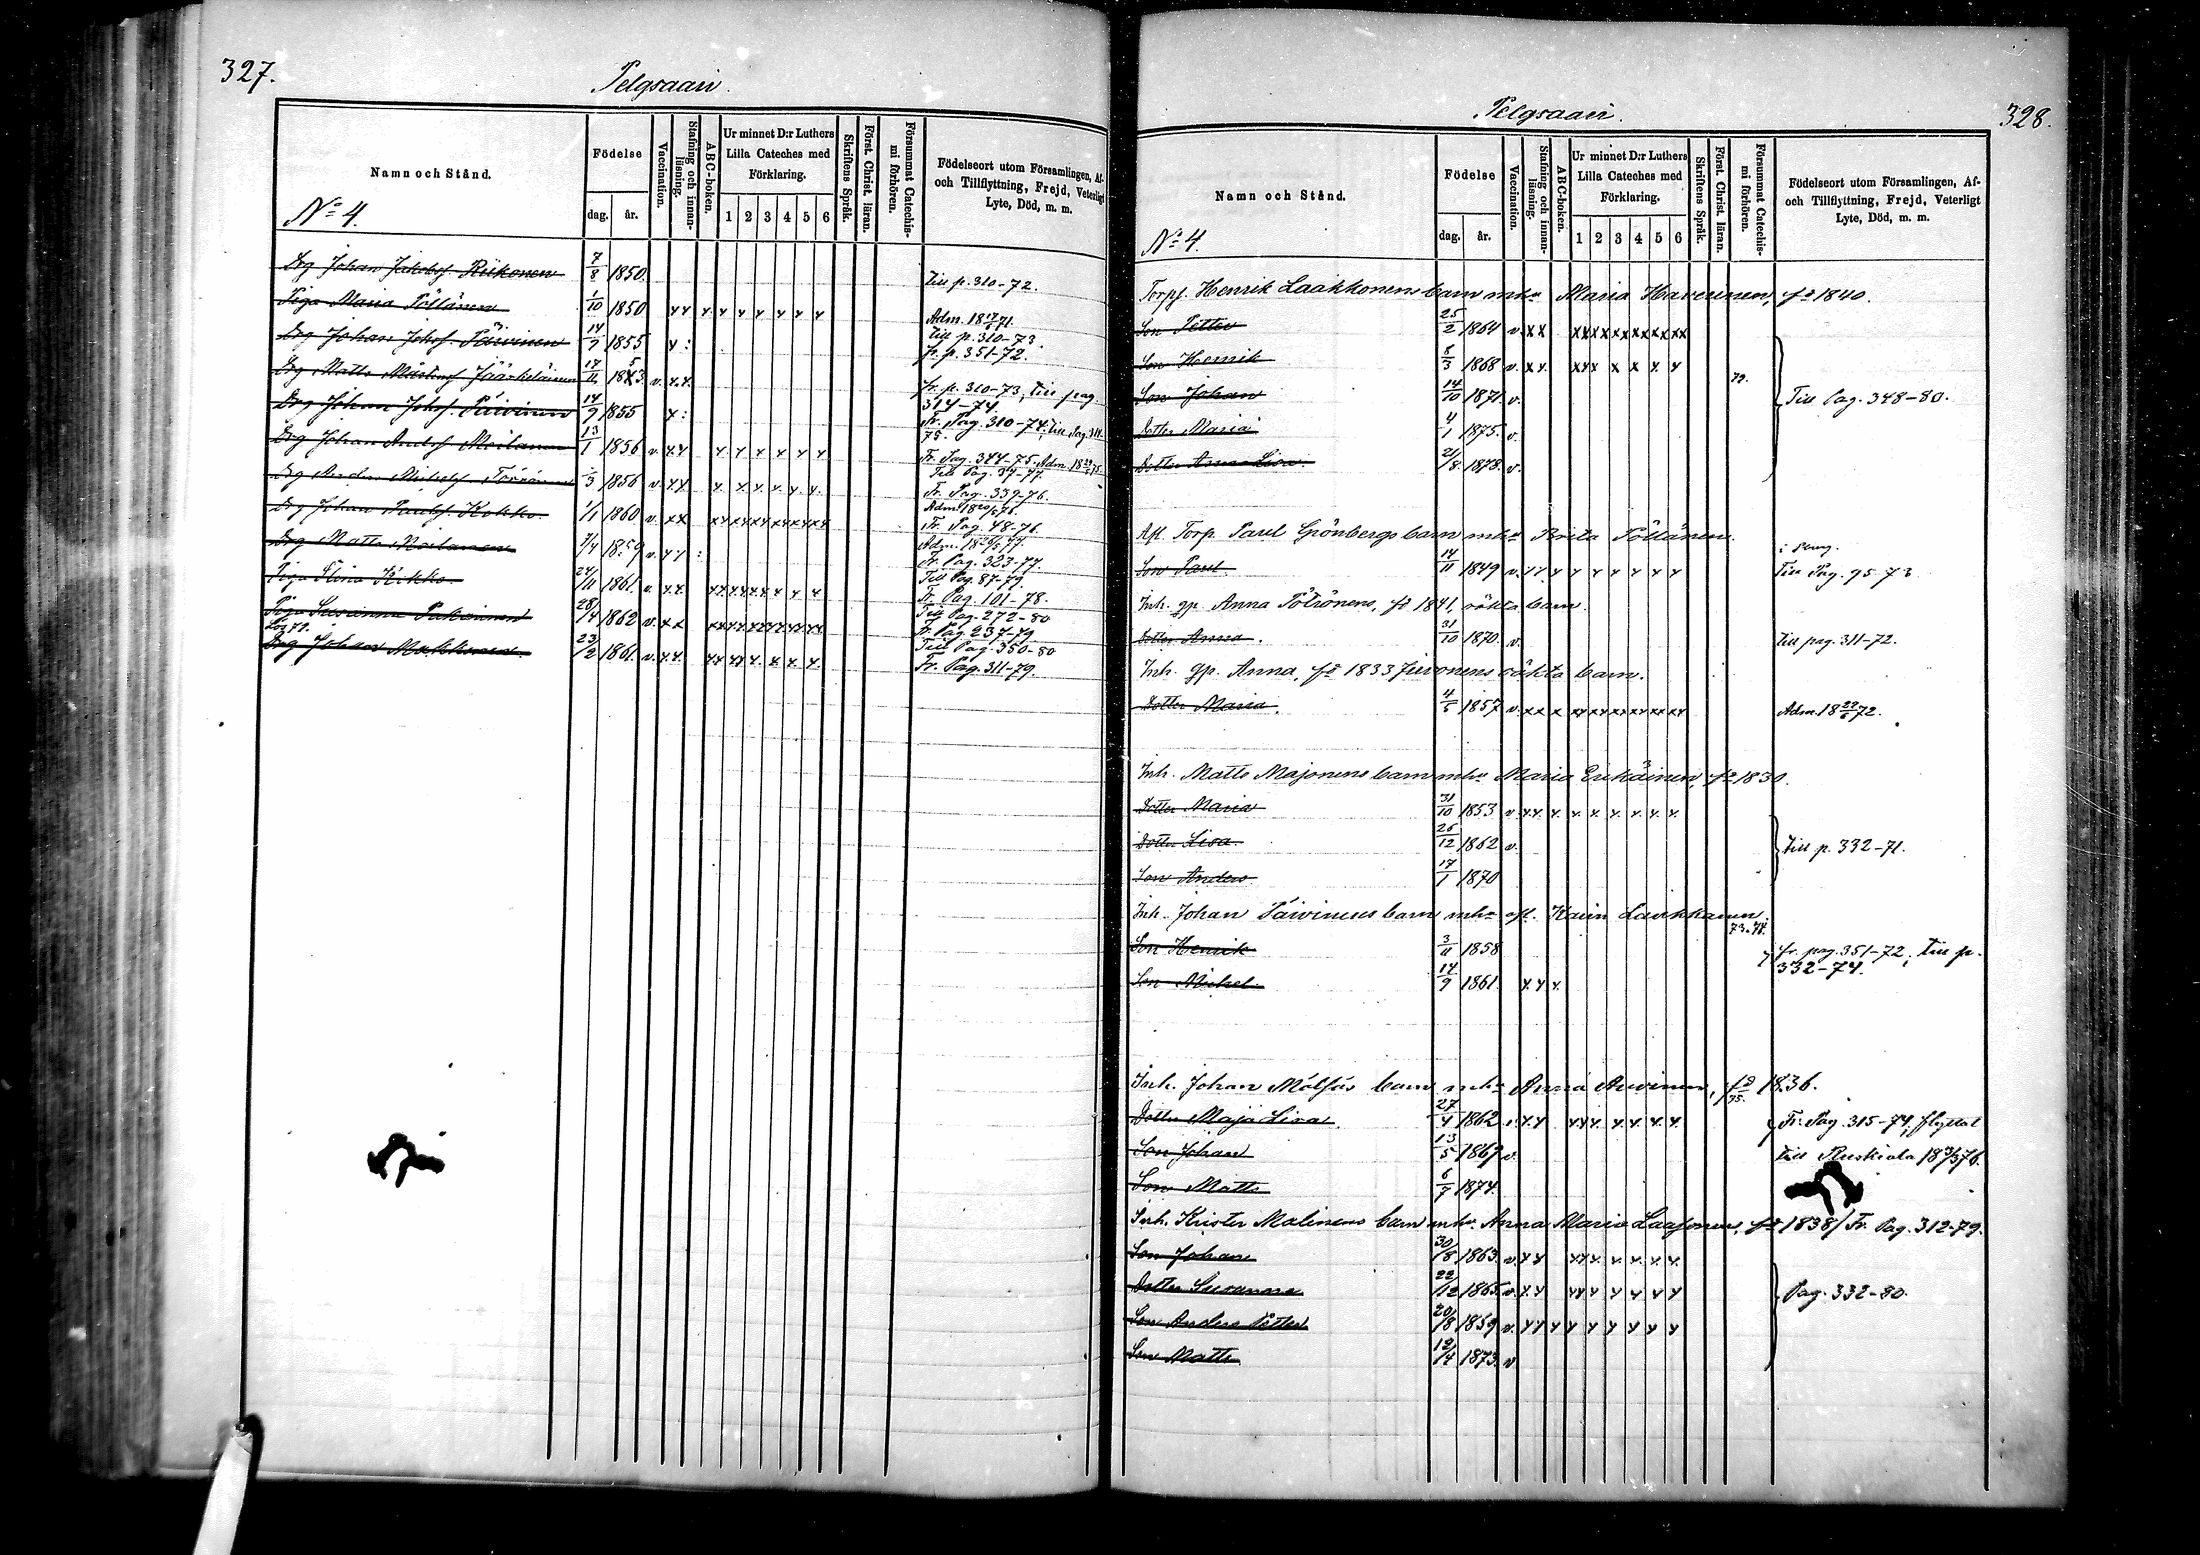 327.
Pelgsaari.
Namn och Stånd.
Födelse
dag. år.
Vaccination.
Stafning och innanläsning.
ABC-boken.
Ur minnet D:r Luthers
Lilla Cateches med
Förklaring.
1 2 3 4 5 6
Skriftens Språk.
Först. Christ. läran.
Försummat Catechismi förhören.
Födelseort utom Församlingen, Af-
och Tillflyttning, Frejd, Veterligt
Lyte, Död, m. m.
No 4.
Drg Johan Jakobsf. Riikonen 7/8 1850. Till p. 310-72.
Piga Maria Pöllänen 1/10 1850 Adm. 18 71.
Till p. 310-73.
Drg Johan Johsf. Päivinen 14/9 1855 x: fr. p. 351-72.
Drg Matts Jääskeläinen 17/11 v. x.x. fr. p. 310-73, till pag.
314-74.
Drg Johan Johsf. Päivinen 14/9 1855 x: Fr. Pag. 310-74, till Pag. 311-
75.
Drg Johan Andsf Moilanen 13/1 1856 v. Fr. Pag. 344-75. Adm. 18 75.
Till Pag. 37-77.
Drg Anders /3 1856 v. Fr. Pag. 339-76.
Drg Johan Paulsf. Kokko. 1/1 1860 v. Fr. Pag. 48-76.
Drg Matts Moilanen /4 1859 v. Fr. Pag. 323-77.
Till Pag. 87-79.
Piga Stina Kokko. 24/11 1861. v. Fr. Pag. 101-78.
Till Pag. 272-80
Piga Susanna Pakarinen 28/4 1862 v. Fr. Pag 237-79.
Till Pag. 350-80
Drg Johan Makkonen. 23/2 1861. v. Fr. Pag. 311-79.
Pelgsaari.
328.
Namn och Stånd.
Födelse
dag. år.
Vaccination.
Stafning och innanläsning.
ABC-boken.
Ur minnet D:r Luthers
Lilla Cateches med
Förklaring.
1 2 3 4 5 6
Skriftens Språk.
Först. Christ. läran.
Försummat Catechismi förhören.
Födelseort utom Församlingen, Af-
och Tillflyttning, Frejd, Veterligt
Lyte, Död, m. m.
No 4.
Torpf. Henrik Laakkonens barn mhu Maria Haverinen, fö 1840.
Son Petter 25/2 1864 v.
Son Henrik 8/3 1868 v. 79.
Son Johan 14/10 1871. v. Till Pag. 348-80.
Dotter Maria 4/1 1875. v.
Dotter Anna Lisa. 21/8 1878. v.
Afl. Torp. Paul Grönbergs barn mhu Brita Pöllänen.
Son Paul. 14/11 1849 v. Till Pag. 95-73
Inh. gp. Anna Pölhönens, fö 1841, oäkta barn.
Dotter Anna. 31/10 1870. v. till pag. 311-72.
Inh. gp. Anna, fö 1833 Jurvonens oäkta barn.
Dotter Maria. 4/5 1857 v. Adm. 18 22/6 72.
Inh. Matts Majonens barn mhu Maria Erikäinen, fö 1830.
Dotter Maria 31/10 1853 v.
Dotter Lisa. 26/12 1862 v. till p. 332-71.
Son Anders. 17/1 1870
Inh. Johan Päivinens barn mhu afl. Karin Laukkanen.
73-74.
Son Henrik 3/11 1858 fr. pag. 351-72, till p.
332-74.
Son Mikel. 14/9 1861.
Inh. Johan Mölsäs barn mhu Anna Auvinen, fö 1836.
75.
Dotter Maja Lisa. 27/4 1862 v. Fr. Pag. 315-74, flyttat
Son Johan 13/5 1867 v. till Ruskiala 18 76.
Son Matts 6/7 1874.
Inh. Krister Malinens barn mhu. Anna Maria Laasonen, fö 1838/ Fr. Pag. 312-79.
Son Johan 30/8 1863. v.
Dotter Susanna 22/12 1865. v. Pag. 332-80.
Son Anders Petter 20/8 1859 v.
Son Matts 12/4 1873. v